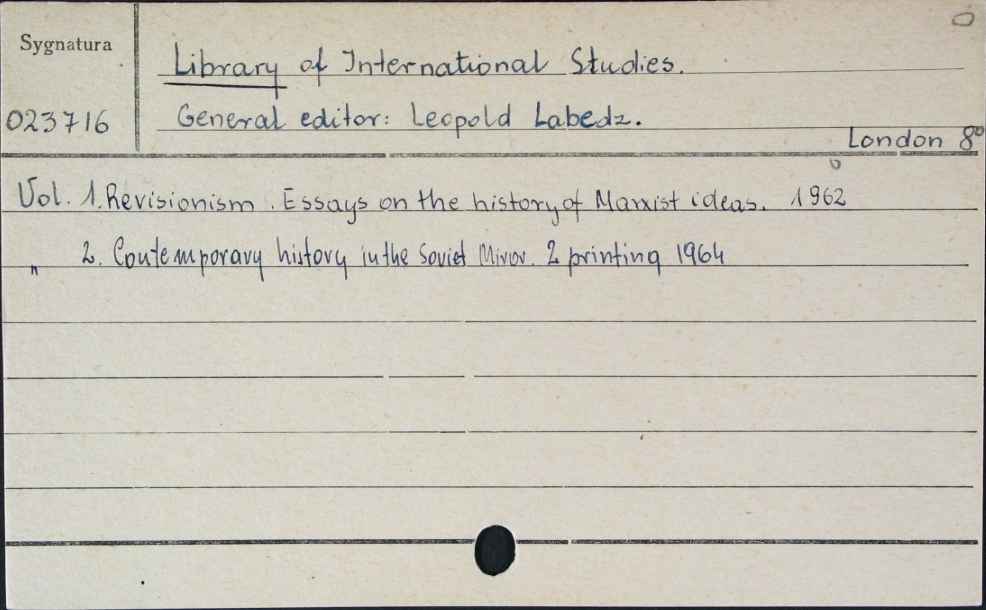 Sygnatura
Library of International Studies.
023716
General editor: Leopold Labedz.
London 8°
Vol. 1. Revisionism. Essays on the history of Marxist ideas. 1962
„ 2. Contemporary history in the Soviet Miror. 2 printing 1964